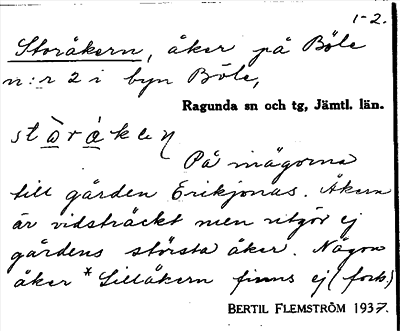 1-2.
Storåkern, åker på Böle
n:r 2 i byn Böle,
Ragunda sn och tg, Jämtl. län.
På inägorna
till gården Erikjonas. Åkern
är vidsträckt men utgör ej
gårdens största åker. Någon
åker *Lillåkern finns ej (forts.)
BERTIL FLEMSTRÖM 1937.